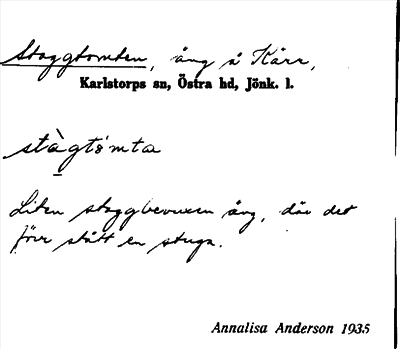 Staggtomten, äng å Kärr,
Karlstorps sn, Östra hd, Jönk. l.
stàgtómta
Liten staggbevuxen äng, där det
förr stått en stuga.
Annalisa Anderson 1935